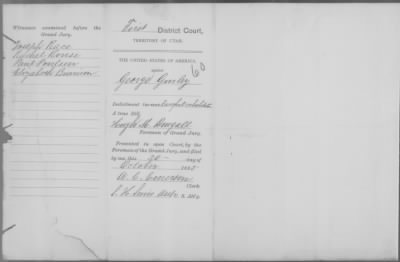 Witnesses examined before the
Grand Jury.
Joseph Race
Rachel Rouse
Paul Poulsen
Elizabeth
First District Court,
TERRITORY OF UTAH.
THE UNITED STATES OF AMERICA
60
George
Indictment for unlawful cohabitat
A true bill.
Hugh M Dougall
Foreman of Grand Jury.
Presented in open Court, by the
Foreman of the Grand Jury, and filed
by me, this 20 day of
October
A. C. Emerson
Clerk.